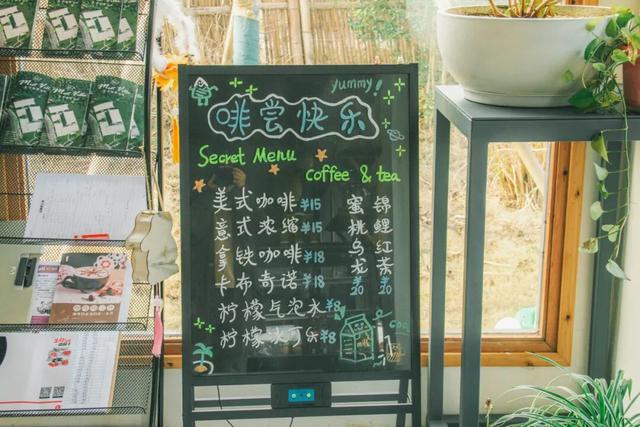 yummy!
啡尝快乐
Secret Menu
coffee & tea
美式咖啡 ¥15
意式浓缩 ¥15
拿铁咖啡 ¥18
卡布奇诺 ¥18
柠檬气泡水 ¥8
柠檬冰可乐 ¥8
蜜桃乌龙 ¥20
锦鲤红茶 ¥20